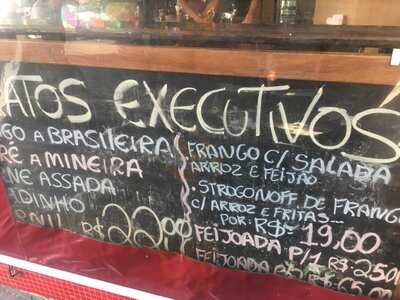 ATOS EXECUTIVOS
GO A BRASILEIRA
RÊ A MINEIRA
NE ASSADA
DINHO
R$22,00
FRANGO C/ SALADA
ARROZ E FEIJÃO
STROGONOFF DE FRANG
C/ ARROZ E FRITAS...
POR: R$ 19,00
FEIJOADA P/1 R$ 25,0
FEIJOADA